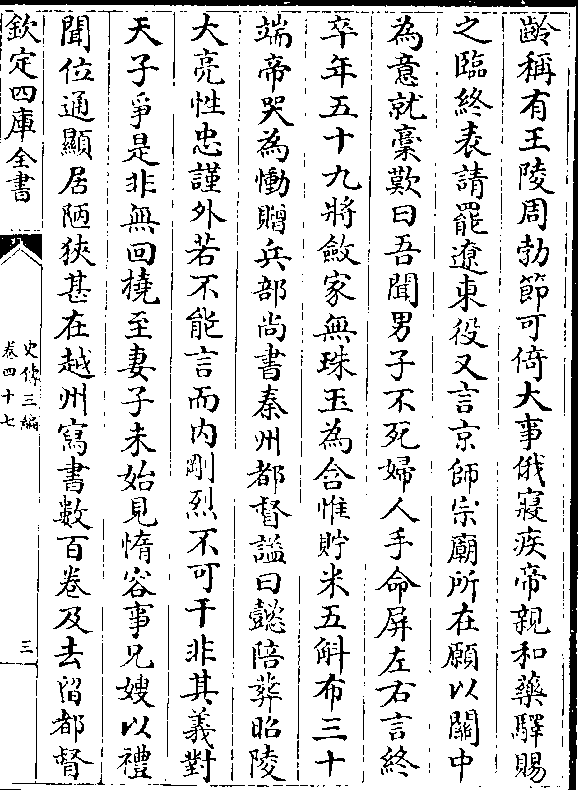 齡稱有王陵周勃節可倚大事俄寢疾帝親和藥驛賜
之臨終表請罷遼東役又言京師宗廟所在願以關中
為意就稾歎曰吾聞男子不死婦人手命屏左右言終
卒年五十九將斂家無珠玉為含惟貯米五斛布三十
端帝哭為慟贈兵部尚書秦州都督謚曰懿陪葬昭陵
大亮性忠謹外若不能言而内剛烈不可干非其義對
天子爭是非無回撓至妻子未始見惰容事兄嫂以禮
聞位通顯居陋狹甚在越州寫書數百卷及去留都督
欽定四庫全書
史傳三編
卷四十七
三